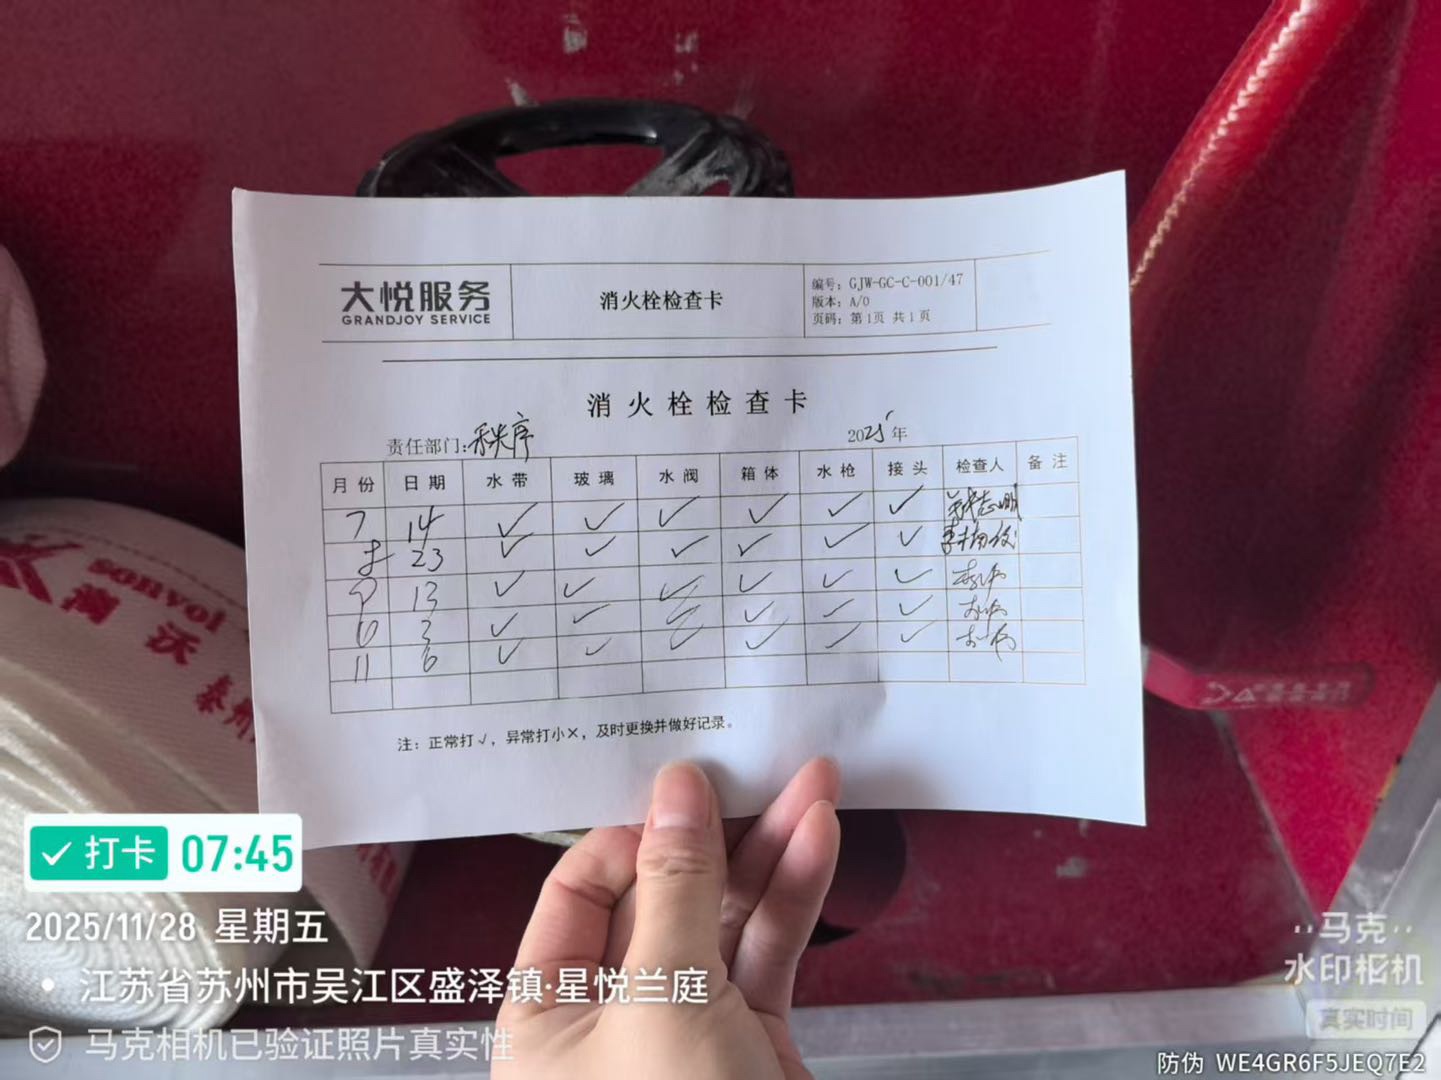 大悦服务
GRANDJOY SERVICE
消火栓检查卡
编号：GJW-GC-C-001/47
版本：A/0
页码：第1页 共1页
消火栓检查卡
责任部门：秩序
2025年
月份 日期 水带 玻璃 水阀 箱体 水枪 接头 检查人 备注
7 14 ✓ ✓ ✓ ✓ ✓ ✓
23 ✓ ✓ ✓ ✓ ✓ ✓
9 13 ✓ ✓ ✓ ✓ ✓ ✓
10 2 ✓ ✓ ✓ ✓ ✓ ✓
11 6 ✓ ✓ ✓ ✓ ✓ ✓
注：正常打√，异常打小×，及时更换并做好记录。
sonvol
沃
泰州
打卡 07:45
2025/11/28 星期五
江苏省苏州市吴江区盛泽镇·星悦兰庭
马克相机已验证照片真实性
马克
水印相机
真实时间
防伪 WE4GR6F5JEQ7E2